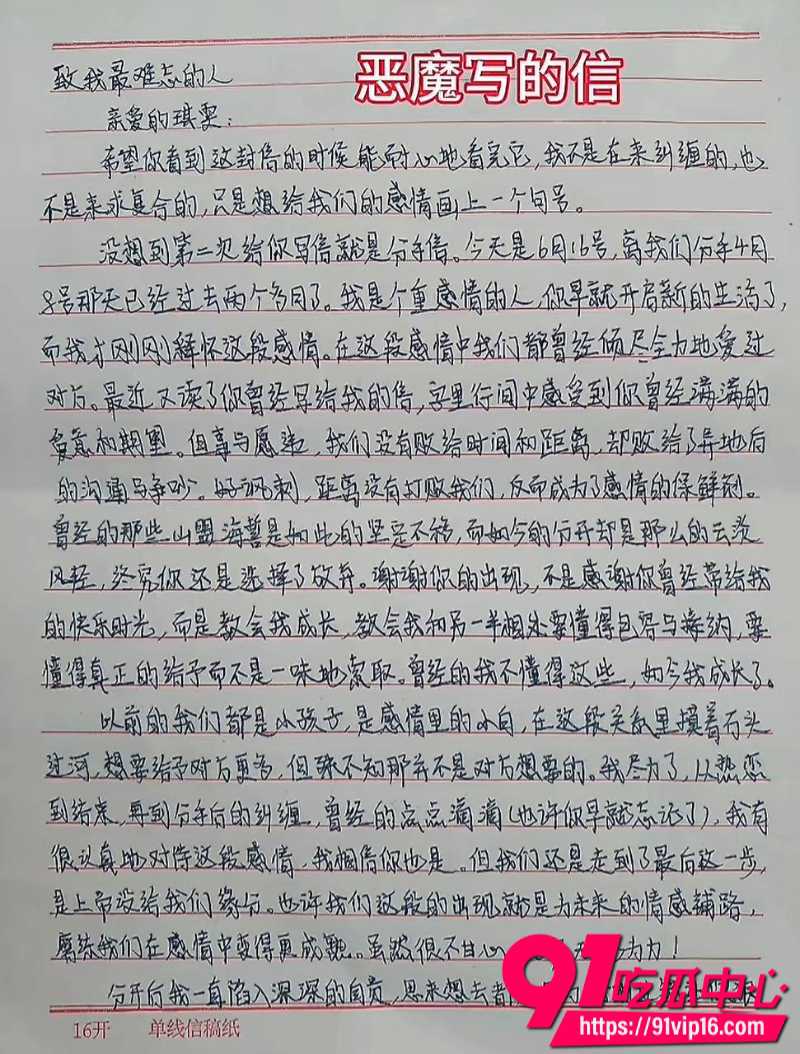 恶魔写的信
致我最难忘的人
亲爱的琪雯：
希望你看到这封信的时候能耐心地看完它，我不是在来纠缠的，也
不是来求复合的，只是想给我们的感情画上一个句号。
没想到第二次给你写信就是分手信。今天是6月16号，离我们分手4月
8号那天已经过去两个多月了。我是个重感情的人，你早就开启新的生活了，
而我才刚刚释怀这段感情。在这段感情中我们都曾经倾尽全力地爱过
对方。最近又读了你曾经写给我的信，字里行间中感受到你曾经满满的
爱意和期望。但事与愿违，我们没有败给时间和距离，却败给了异地后
的沟通与争吵。好讽刺，距离没有打败我们，反而成为了感情的保鲜剂。
曾经的那些山盟海誓是如此的坚定不移，而如今的分开却是那么的云淡
风轻，终究你还是选择了放弃。谢谢你的出现，不是感谢你曾经带给我
的快乐时光，而是教会我成长，教会我和另一半相处要懂得包容与接纳，要
懂得真正的给予而不是一味地索取。曾经的我不懂得这些，如今我成长了。
以前的我们都是小孩子，是感情里的小白，在这段关系里摸着石头
过河，想要给予对方更多，但殊不知那并不是对方想要的。我尽力了，从热恋
到结束，再到分手后的纠缠，曾经的点点滴滴（也许你早就忘记了），我有
很认真地对待这段感情，我相信你也是。但我们还是走到了最后这一步，
是上帝没给我们缘分。也许我们这段的出现就是为未来的情感铺路，
磨练我们在感情中变得更成熟。虽然很不甘心 为力！
分开后我一直陷入深深的自责，思来想去都
91吃瓜中心
https://91vip16.com
16开 单线信稿纸